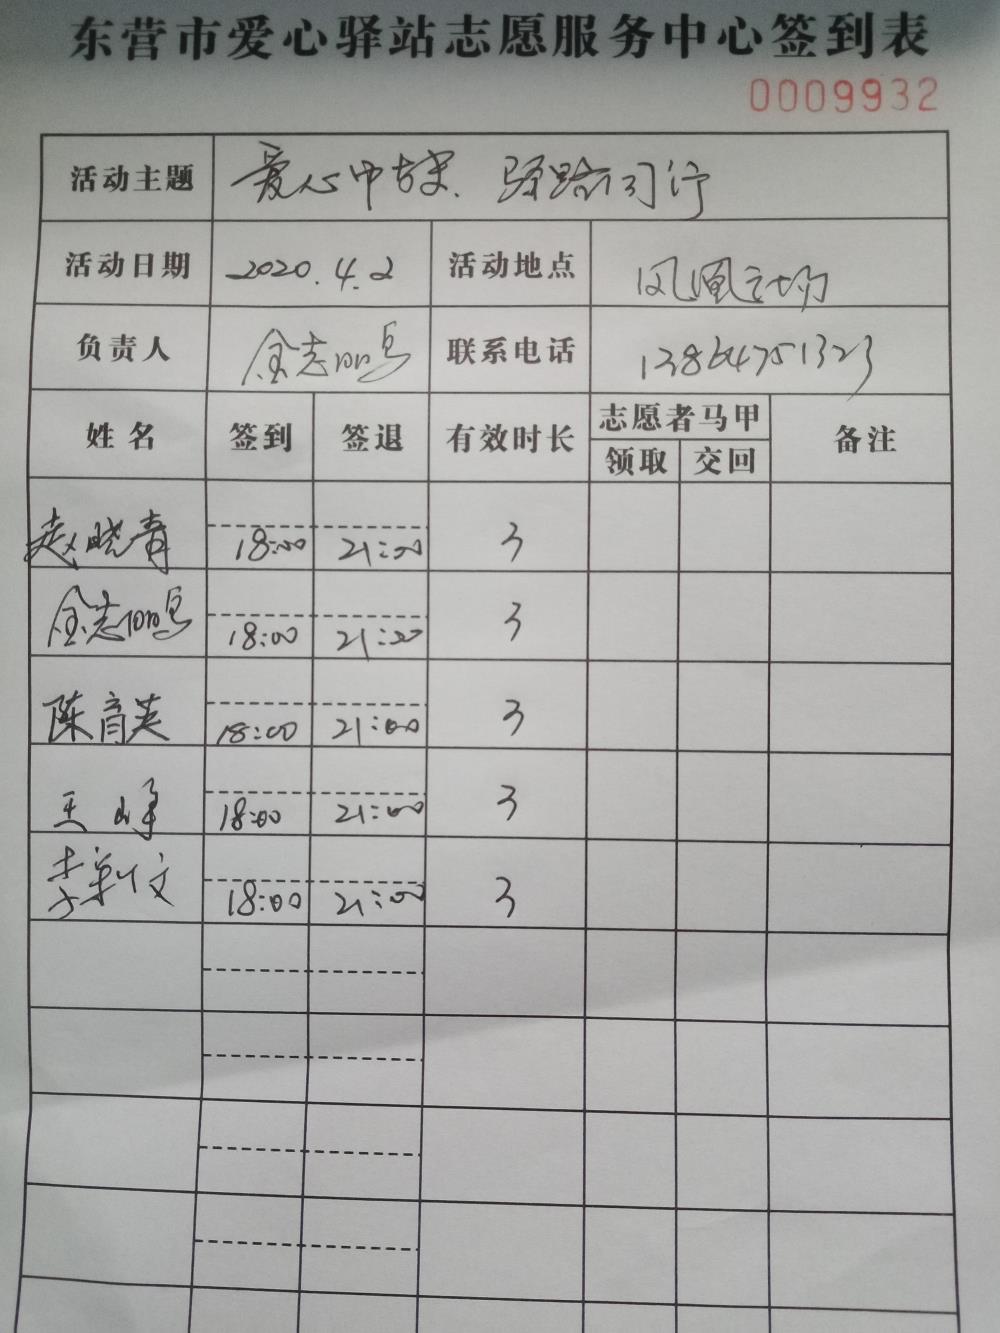 东营市爱心驿站志愿服务中心签到表
0009932
活动主题 爱心中 驿路同行
活动日期 2020.4.2 活动地点 凤凰广场
负责人 金志鹏 联系电话
姓名 签到 签退 有效时长 志愿者马甲 备注
领取 交回
赵晓青 18:00 21:00 3
金志鹏 18:00 21:00 3
陈育英 18:00 21:00 3
王峰 18:00 21:00 3
李新文 18:00 21:00 3